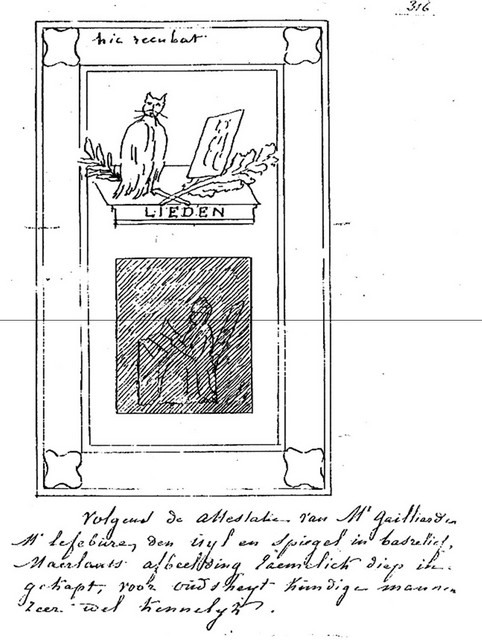 316
hic recubat
LIEDEN
Volgend de attestatie van Mr Gailliard en
Mr lefebure, den uyl en spiegel in basrelief,
Maerlants afbeelding taemelick diep in-
gekapt, voor oudsheyt kundige mannen
zeer wel kennelyk.